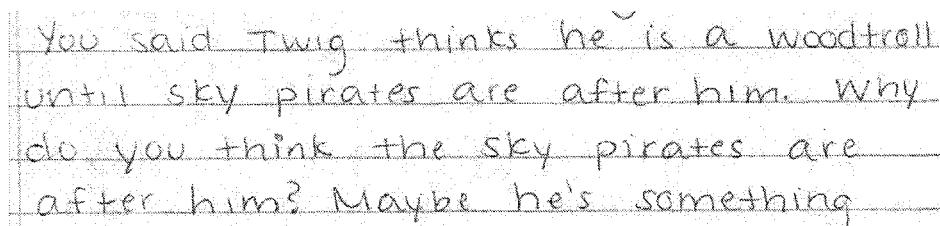 You said Twig thinks he is a woodtroll
until sky pirates are after him. Why
do you think the sky pirates are
after him? Maybe he's something